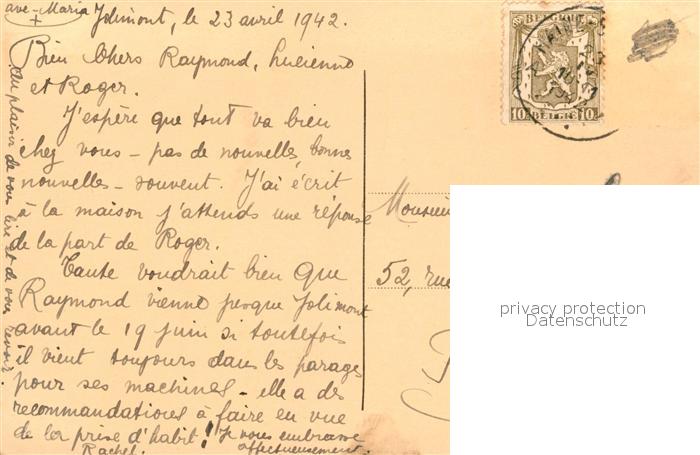 ave-Maria
+
Jolimont, le 23 avril 1942.
Bien Chers Raymond, Lucienne
et Roger.
J'espère que tout va bien
chez vous - pas de nouvelles, bonnes
nouvelles - souvent. J'ai écrit
à la maison j'attends une réponse
de la part de Roger.
Tante voudrait bien que
Raymond vienne jusque Jolimont
avant le 19 juin si toutefois
il vient toujours dans les parages
pour ses machines - elle a des
recommandations à faire en vue
de la prise d'habit! Je vous embrasse
affectueusement.
Rachel.
Au plaisir de vous lire et de vous revoir.
BELGIQUE
10 10
BELGIE
Monsieur
52, rue
privacy protection
Datenschutz